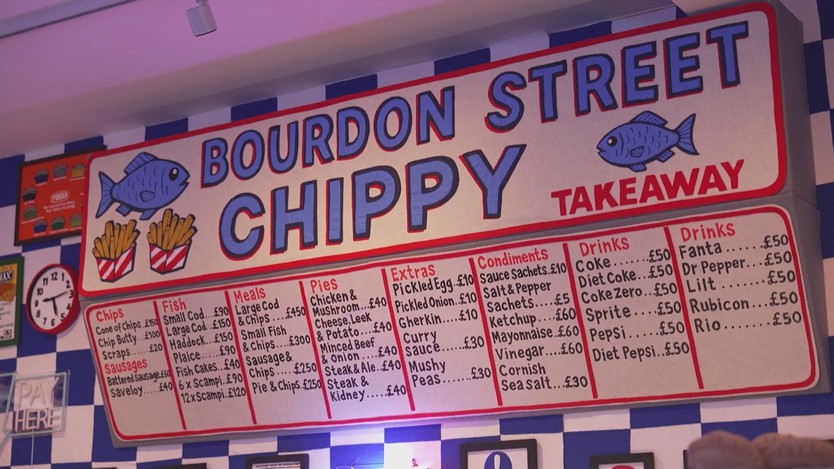 BOURDON STREET
CHIPPY
TAKEAWAY
Chips
Cone of Chips £150
Chip Butty £100
Scraps £20
Sausages
Battered Sausage £60
Saveloy £40
Fish
Small Cod £90
Large Cod £150
Haddock £150
Plaice £90
Fish Cakes £40
6 x Scampi £90
12 x Scampi £120
Meals
Large Cod
& Chips £450
Small Fish
& Chips £300
Sausage &
Chips £250
Pie & Chips £250
Pies
Chicken &
Mushroom £40
Cheese, Leek
& Potato £40
Minced Beef
& Onion £40
Steak & Ale £40
Steak &
Kidney £40
Extras
Pickled Egg £10
Pickled Onion £10
Gherkin £10
Curry
Sauce £30
Mushy
Peas £30
Condiments
Sauce Sachets £10
Salt & Pepper
Sachets £5
Ketchup £60
Mayonnaise £60
Vinegar £60
Cornish
Sea Salt £30
Drinks
Coke £50
Diet Coke £50
Coke Zero £50
Sprite £50
Pepsi £50
Diet Pepsi £50
Drinks
Fanta £50
Dr Pepper £50
Lilt £50
Rubicon £50
Rio £50
PAY
HERE